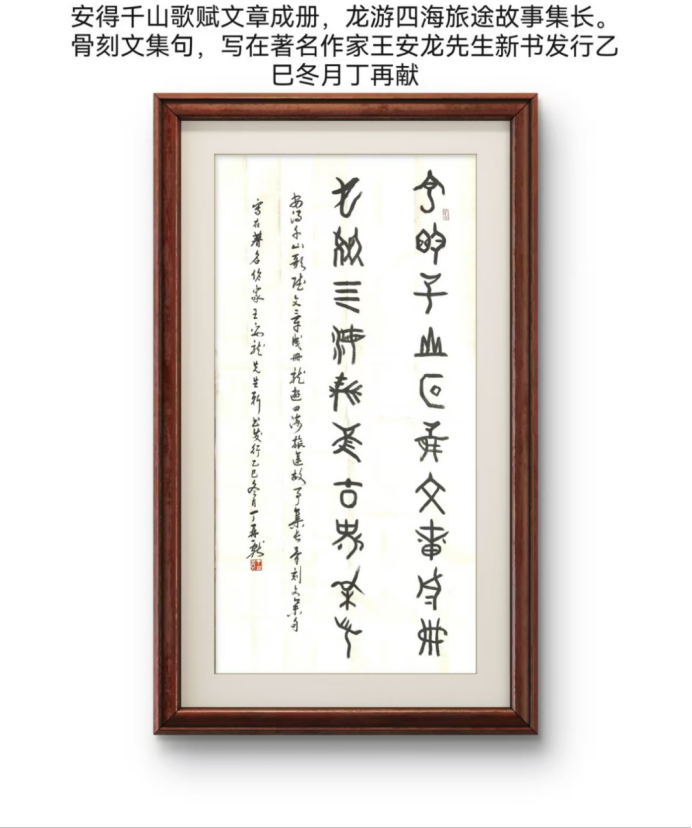 安得千山歌赋文章成册，龙游四海旅途故事集长。
骨刻文集句，写在著名作家王安龙先生新书发行乙
巳冬月丁再献
安得千山歌赋文章成册
龙游四海旅途故事集长
安得千山歌赋文章成册龙遊四海旅途故事集长骨刻文集句
写在著名作家王安龙先生新书发行乙巳冬月丁再献